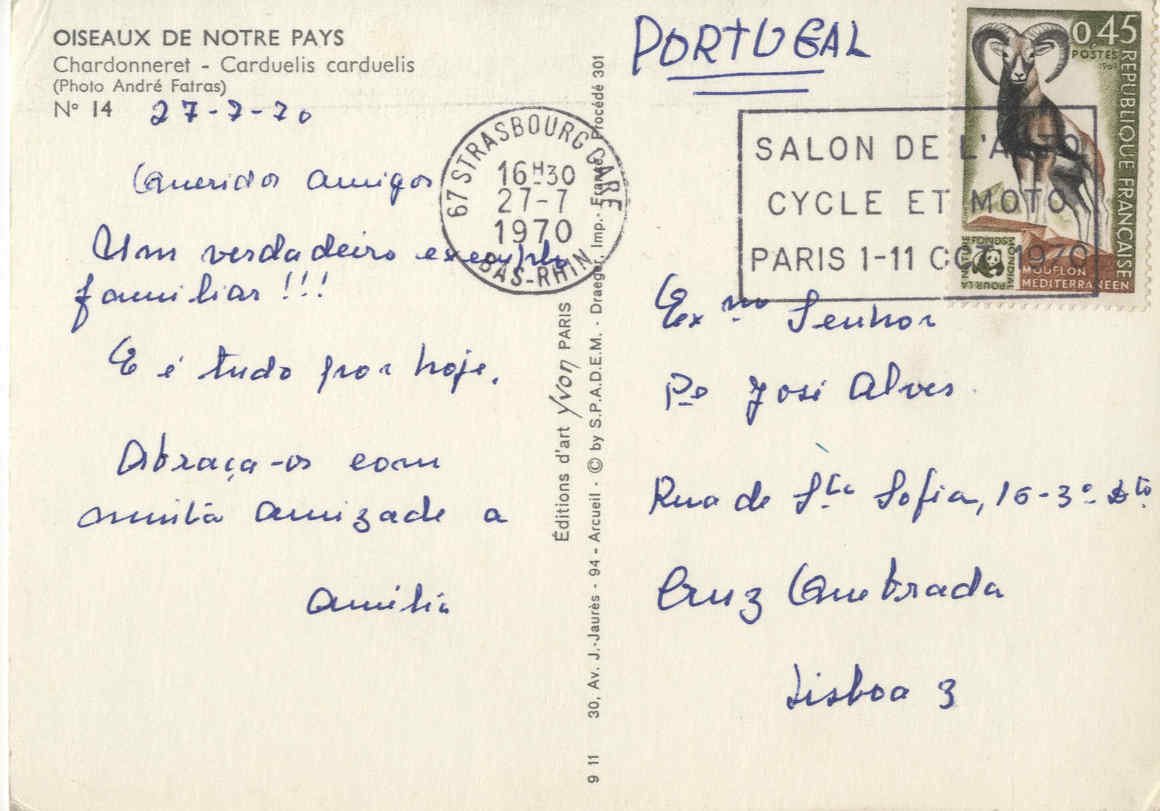 OISEAUX DE NOTRE PAYS
Chardonneret - Carduelis carduelis
(Photo André Fatras)
N° 14
27-7-70
Queridos amigos
Um verdadeiro exemplo
familiar !!!
E é tudo por hoje.
Abraça-os com
muita amizade a
Amélia
67 STRASBOURG GARE
16H30
27-7
1970
BAS-RHIN
Éditions d'art Yvon PARIS
9 11 30, Av. J.-Jaurès - 94 - Arcueil - © by S.P.A.D.E.M. - Draeger, Imp. - France - Procédé 301
PORTUGAL
SALON DE L'AUTO
CYCLE ET MOTO
PARIS 1-11 OCT 1970
0,45
POSTES
REPUBLIQUE FRANÇAISE
MOUFLON
MEDITERRANEEN
FONDS MONDIAL
POUR LA
Exmo Senhor
Pe José Alves
Rua de Sta Sofia, 16-3º Dto
Cruz Quebrada
Lisboa 3